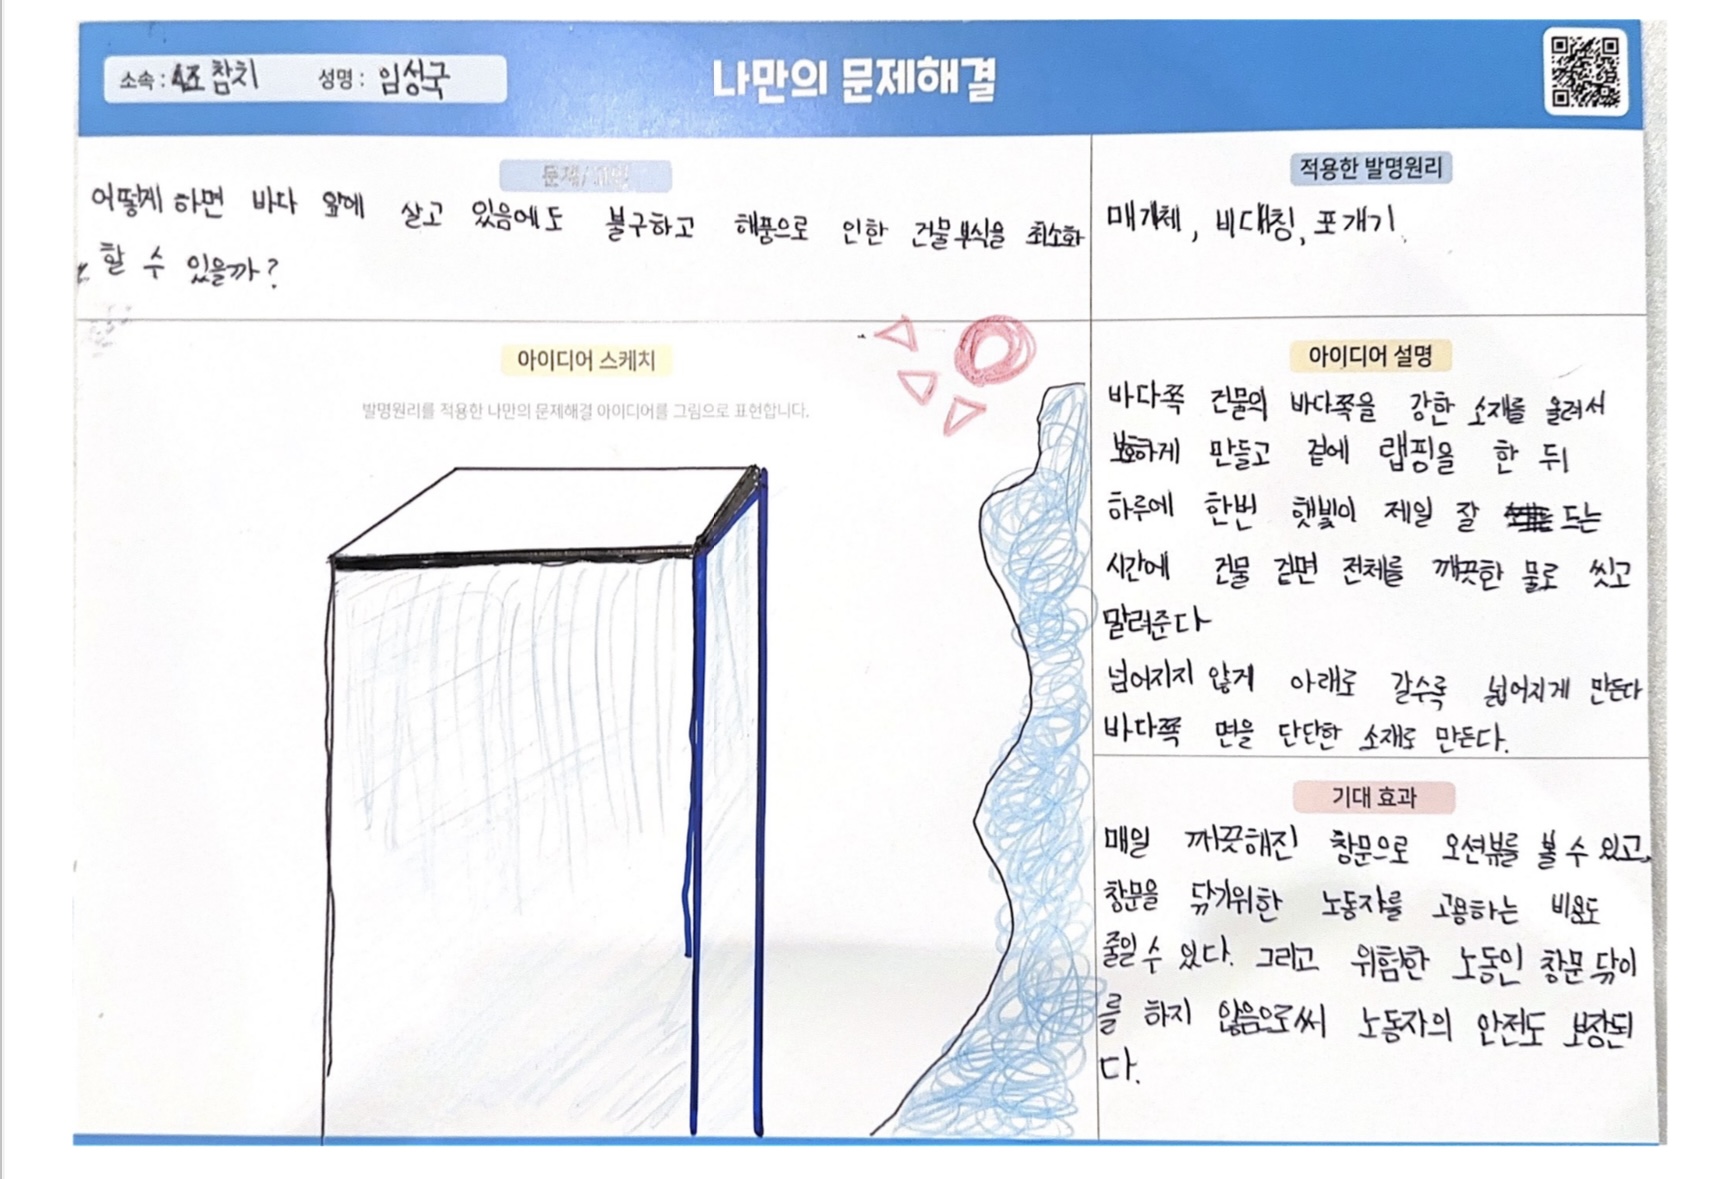 나만의 문제해결
소속 : 4조 참치 성명 : 임성국
문제/고민
어떻게 하면 바다 앞에 살고 있음에도 불구하고 해풍으로 인한 건물부식을 최소화
할 수 있을까?
적용한 발명원리
매개체, 비대칭, 포개기.
아이디어 스케치
발명원리를 적용한 나만의 문제해결 아이디어를 그림으로 표현합니다.
아이디어 설명
바다쪽 건물의 바다쪽을 강한 소재를 올려서
보호하게 만들고 겉에 랩핑을 한 뒤
하루에 한번 햇빛이 제일 잘 드는
시간에 건물 겉면 전체를 깨끗한 물로 씻고
말려준다
넘어지지 않게 아래로 갈수록 넓어지게 만든다
바다쪽 면을 단단한 소재로 만든다.
기대 효과
매일 깨끗해진 창문으로 오션뷰를 볼 수 있고,
창문을 닦기위한 노동자를 고용하는 비용도
줄일 수 있다. 그리고 위험한 노동인 창문 닦이
를 하지 않음으로써 노동자의 안전도 보장된
다.